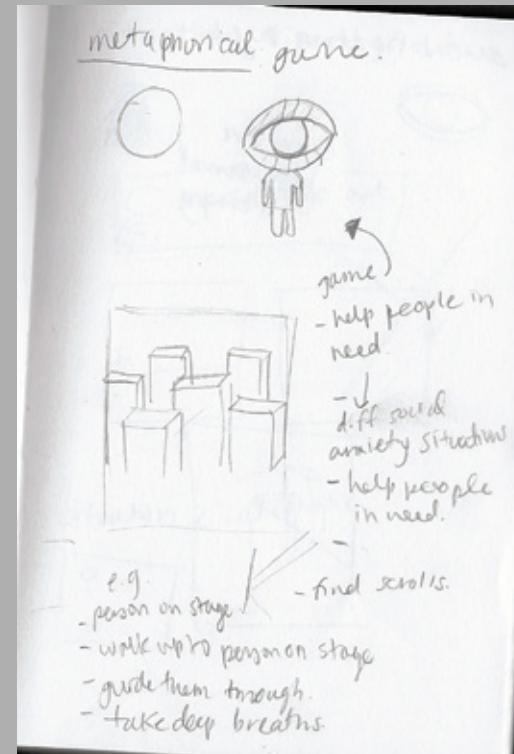 metaphorical game.
game
- help people in
need.
-
diff social
anxiety situations
- help people
in need.
-
- find scrolls.
e.g.
- person on stage
- walk up to person on stage
- guide them through.
- take deep breaths.